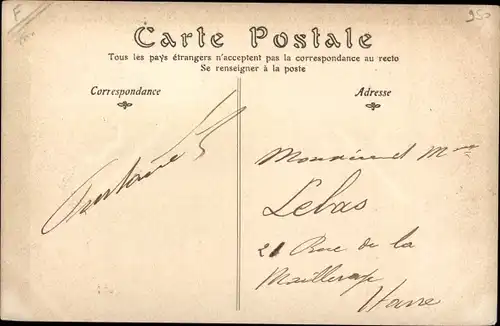 F
950
Carte Postale
Tous les pays étrangers n'acceptent pas la correspondance au recto
Se renseigner à la poste
Correspondance
Adresse
Monsieur et Mme
Lebas
21 Rue de la
Mailleraye
Havre